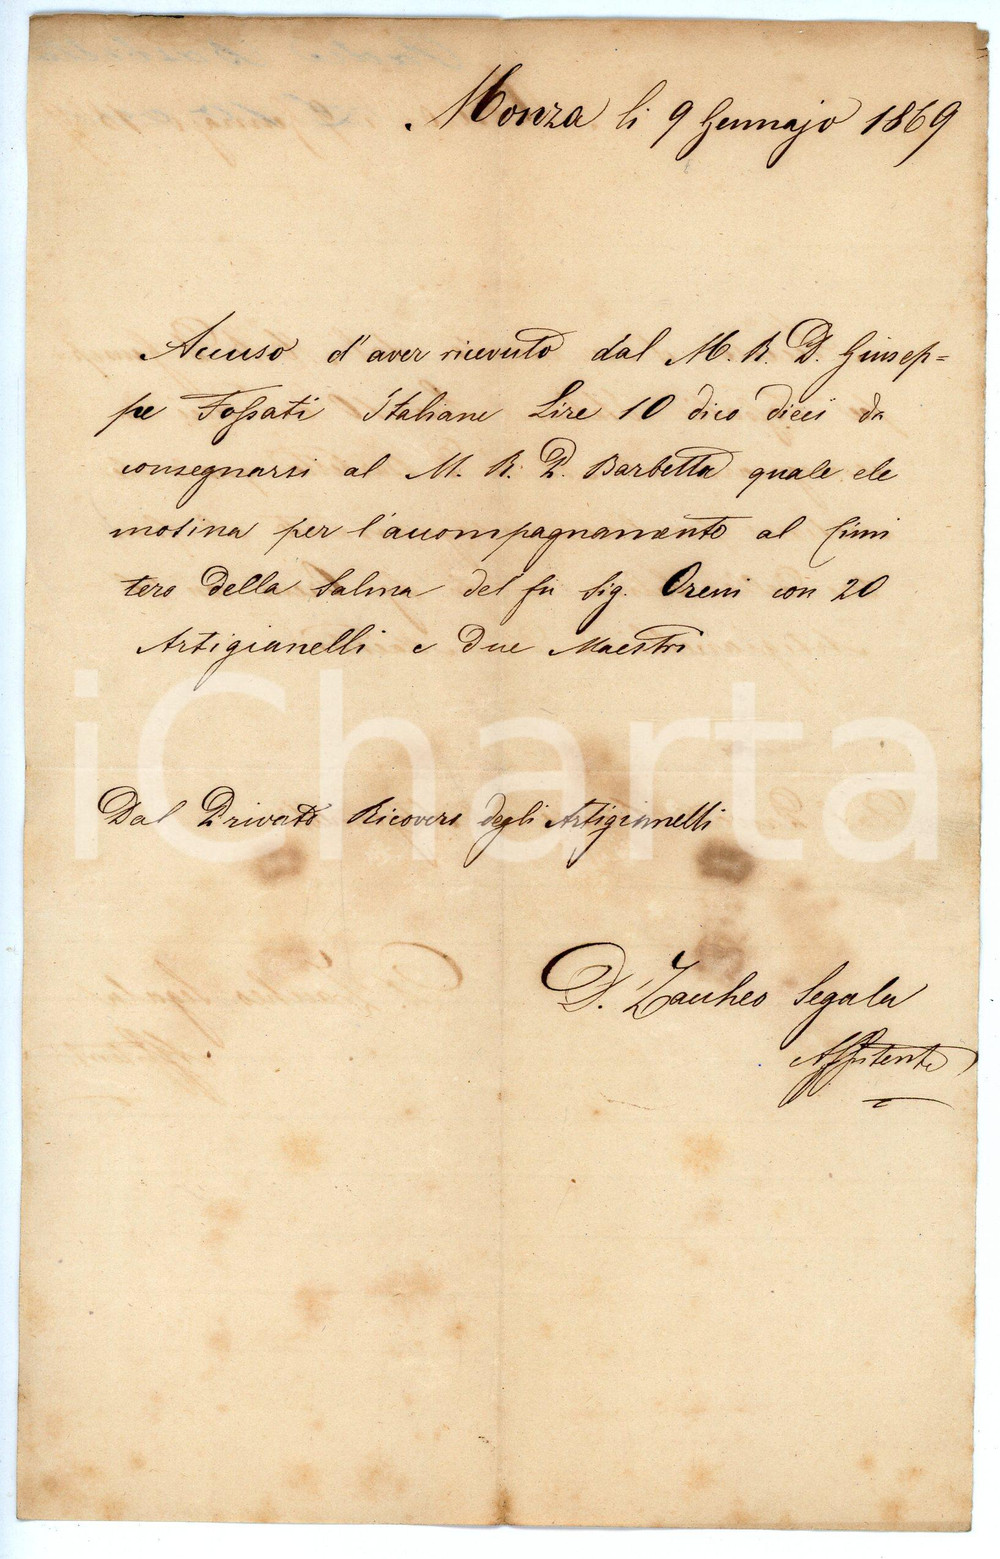 Monza li 9 Gennajo 1869
Accuso d'aver ricevuto dal M. R. D. Giusep=
pe Fossati Italiane Lire 10 dico dieci da
consegnarsi al M. R. P. Barbetta quale ele
mosina per l'accompagnamento al Cimi
tero della Salma del fu Sig. Oreni con 20
Artigianelli e due Maestri
iCharta
Dal Privato Ricovero degli Artigianelli
D. Zaccheo Segala
Assistente